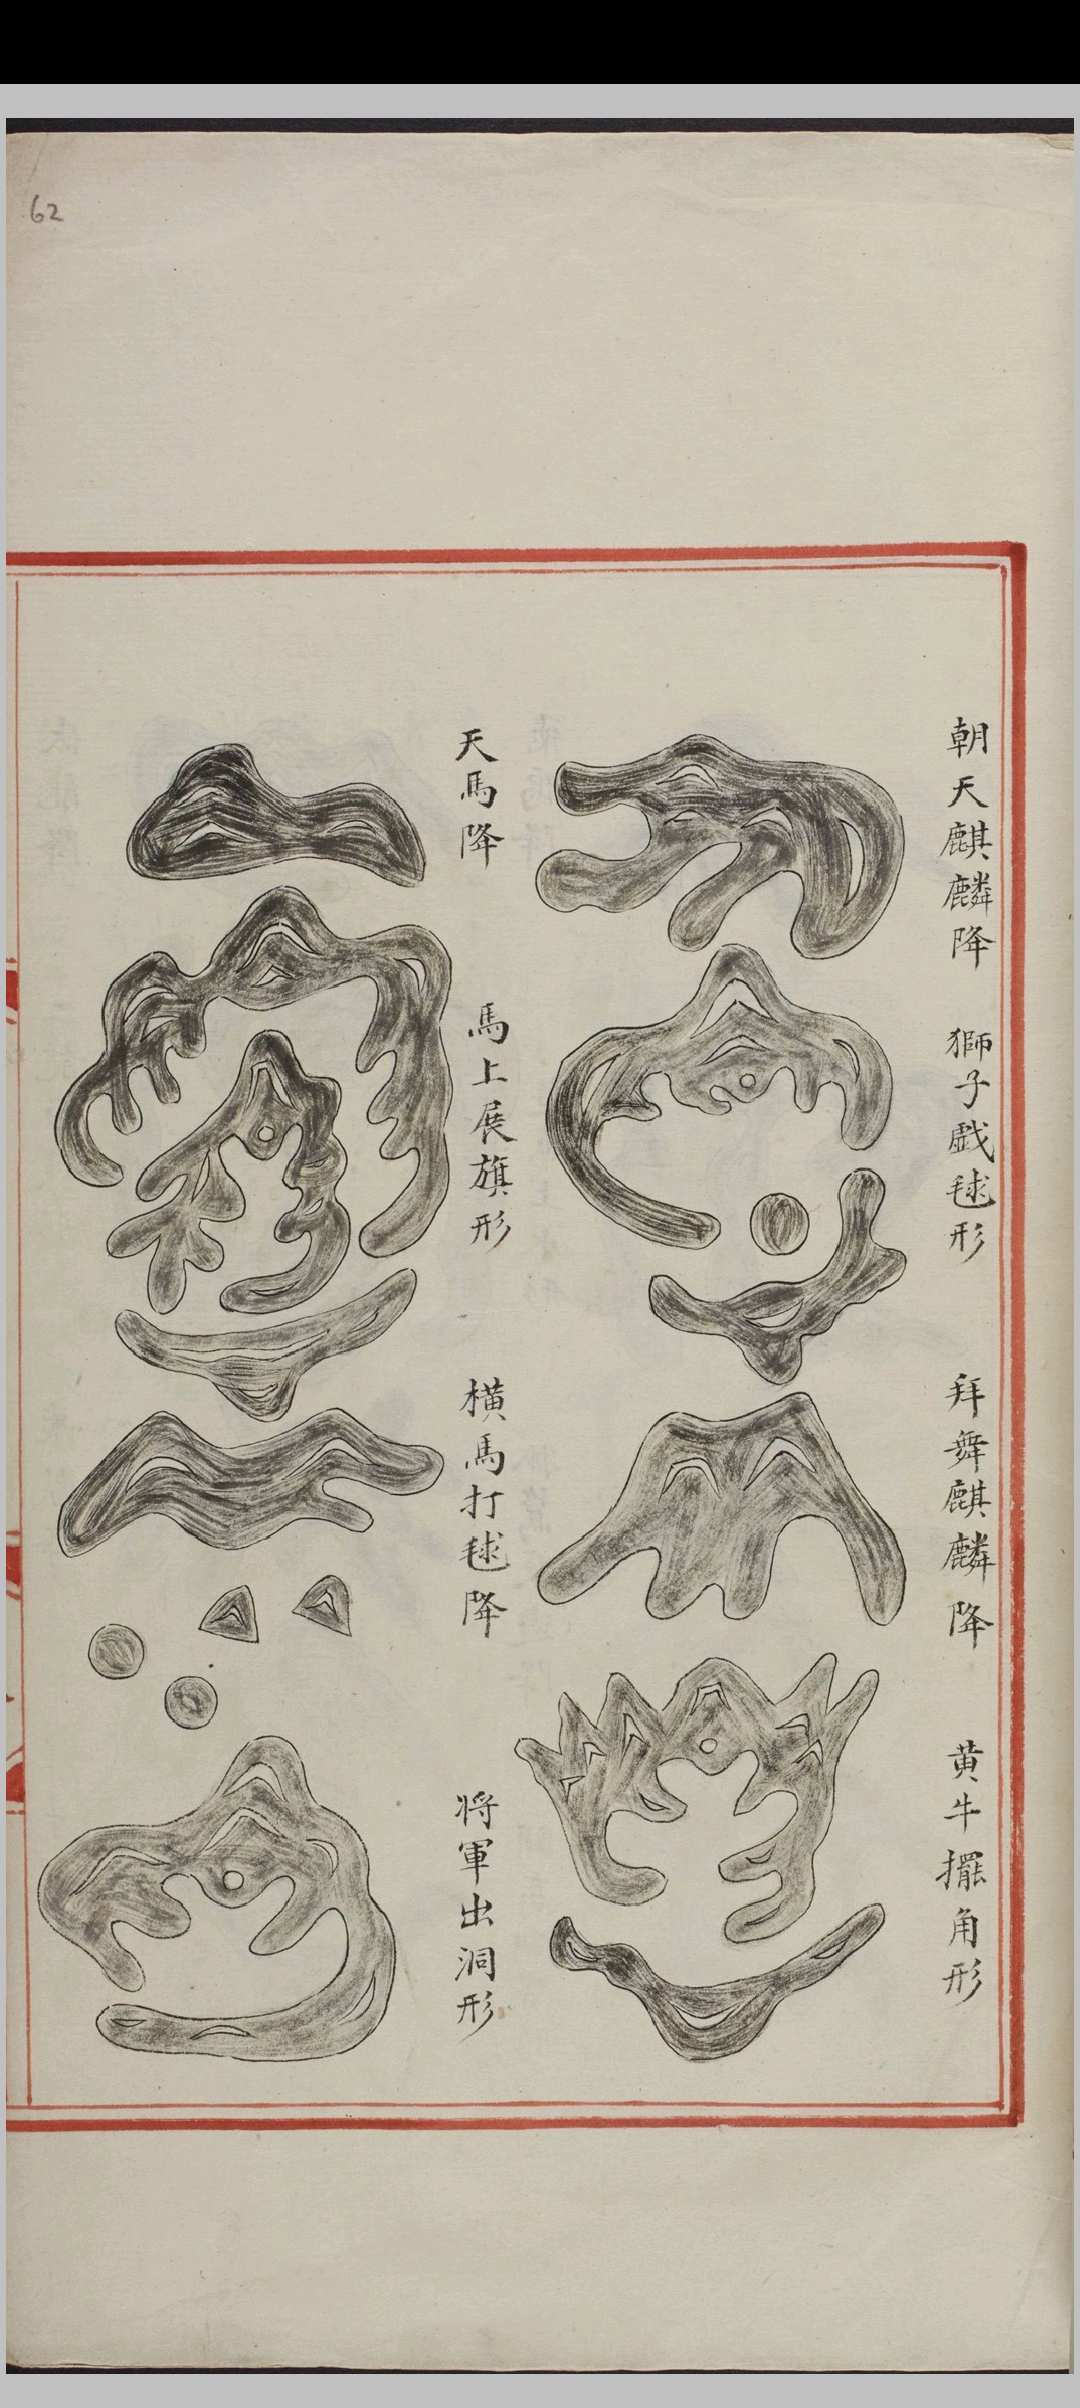 62
朝天麒麟降
獅子戯毬形
拜舞麒麟降
黄牛擺角形
天馬降
馬上展旗形
橫馬打毬降
将軍出洞形